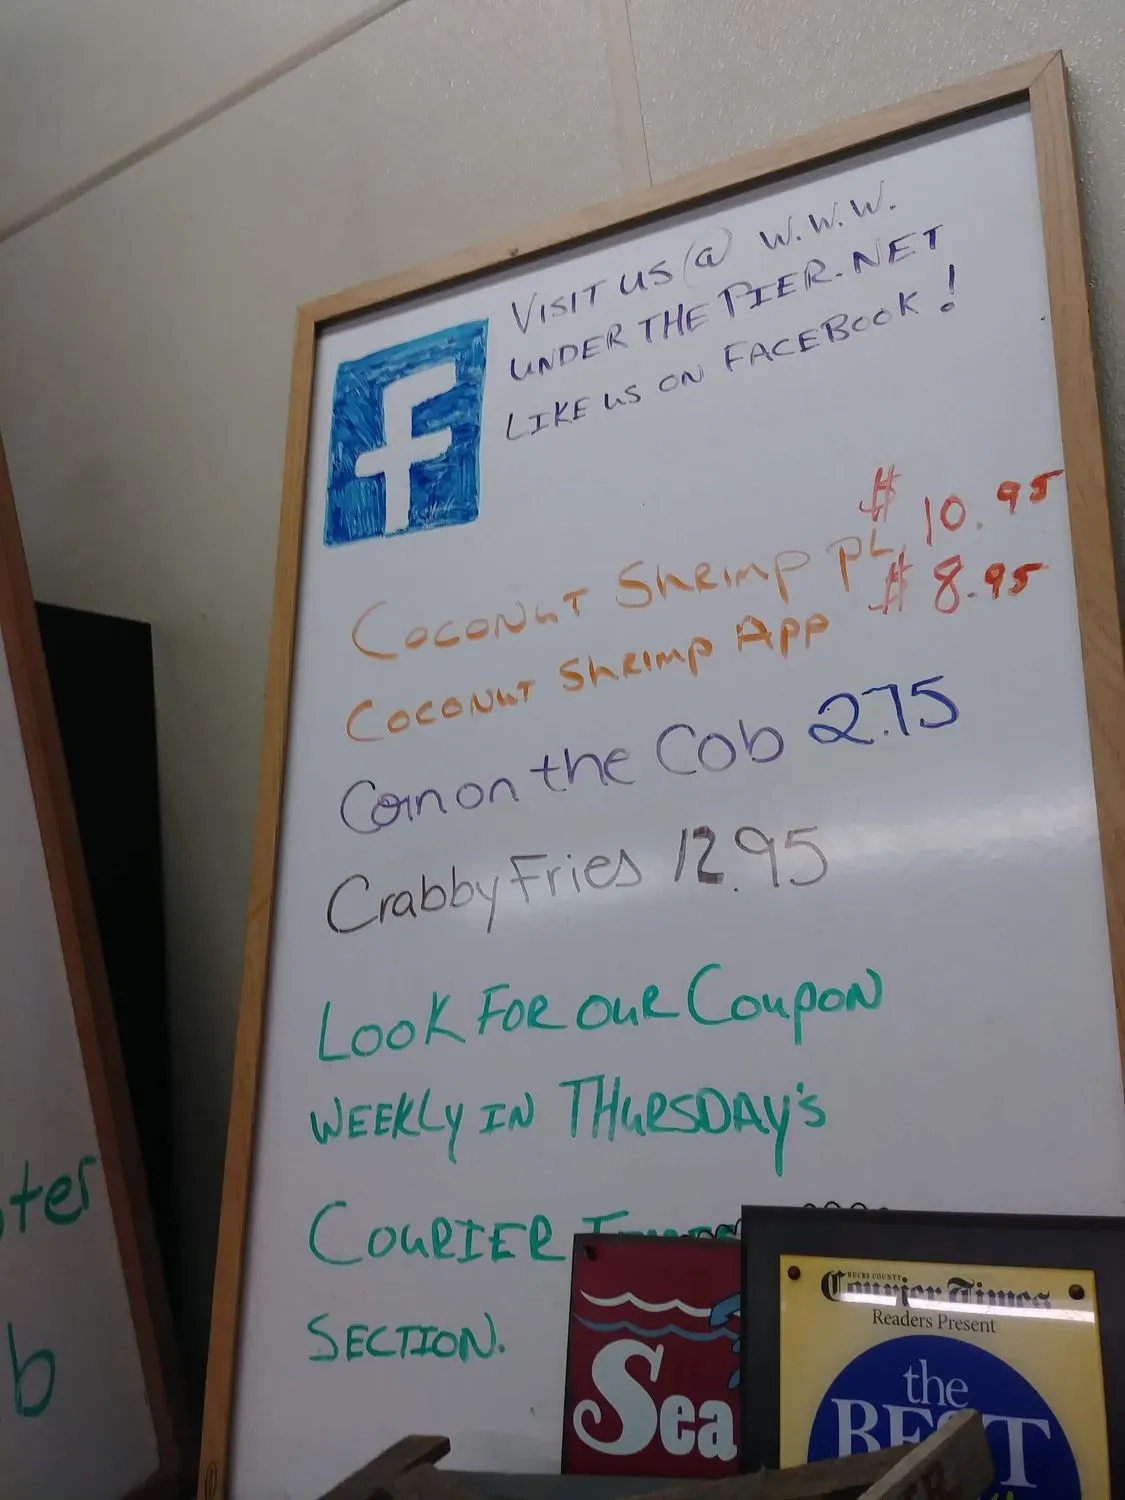 f
VISIT US @ W.W.W.
UNDER THE PIER.NET
LIKE US ON FACEBOOK!
COCONUT ShRImp pL. $10.95
COCONUT ShRImp App $8.95
Corn on the Cob 2.75
Crabby Fries 12.95
LOOK FOR OUR COUPON
WEEKLY IN THURSDAY'S
COURIER
SECTION.
ter
b
Sea
BUCKS COUNTY
Courier Times
Readers Present
the
BEST